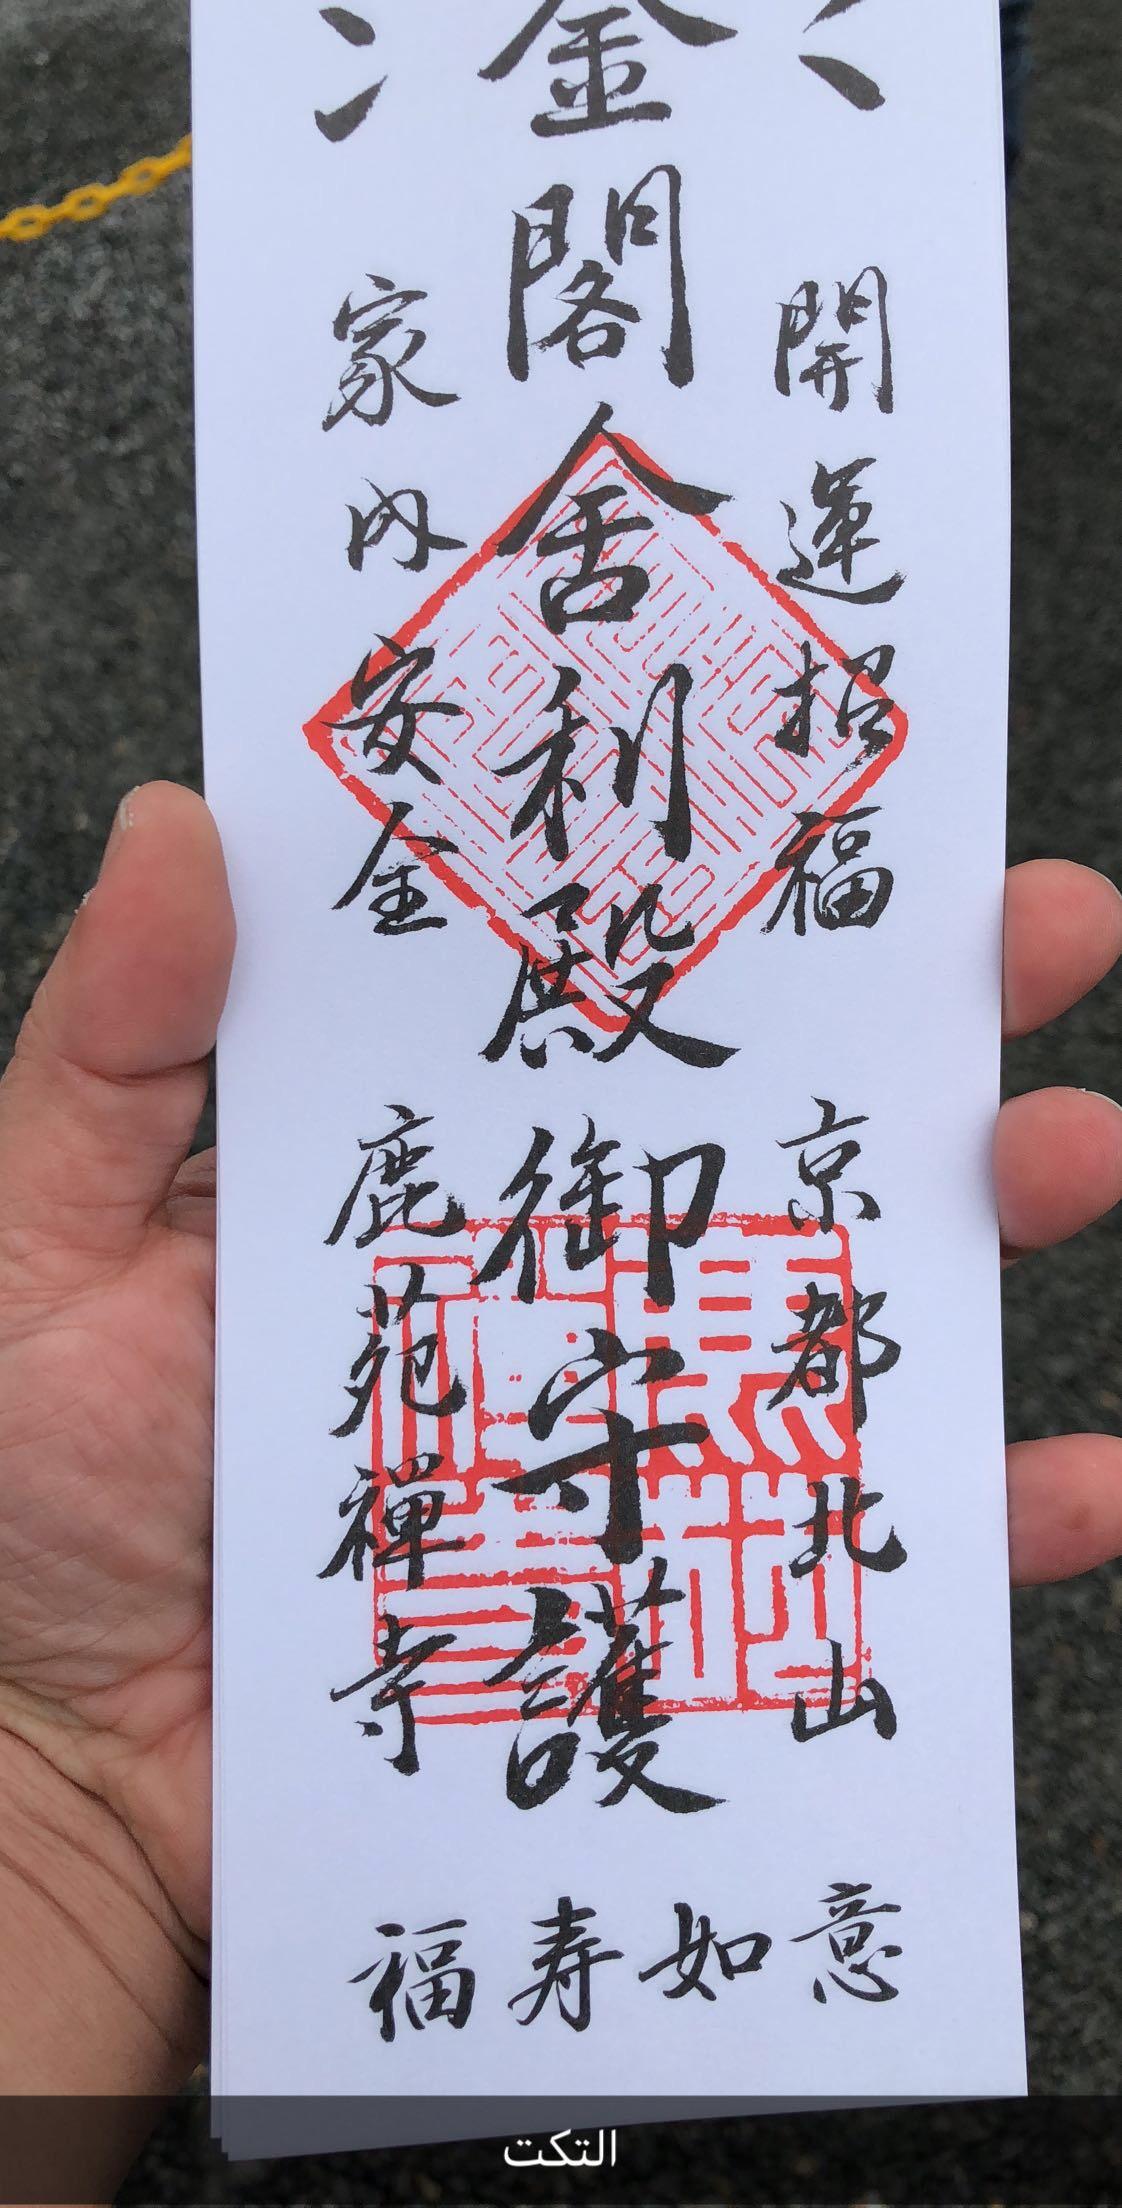 開運招福
京都北山
金閣舎利殿御守護
家内安全
鹿苑禅寺
福寿如意
التكت